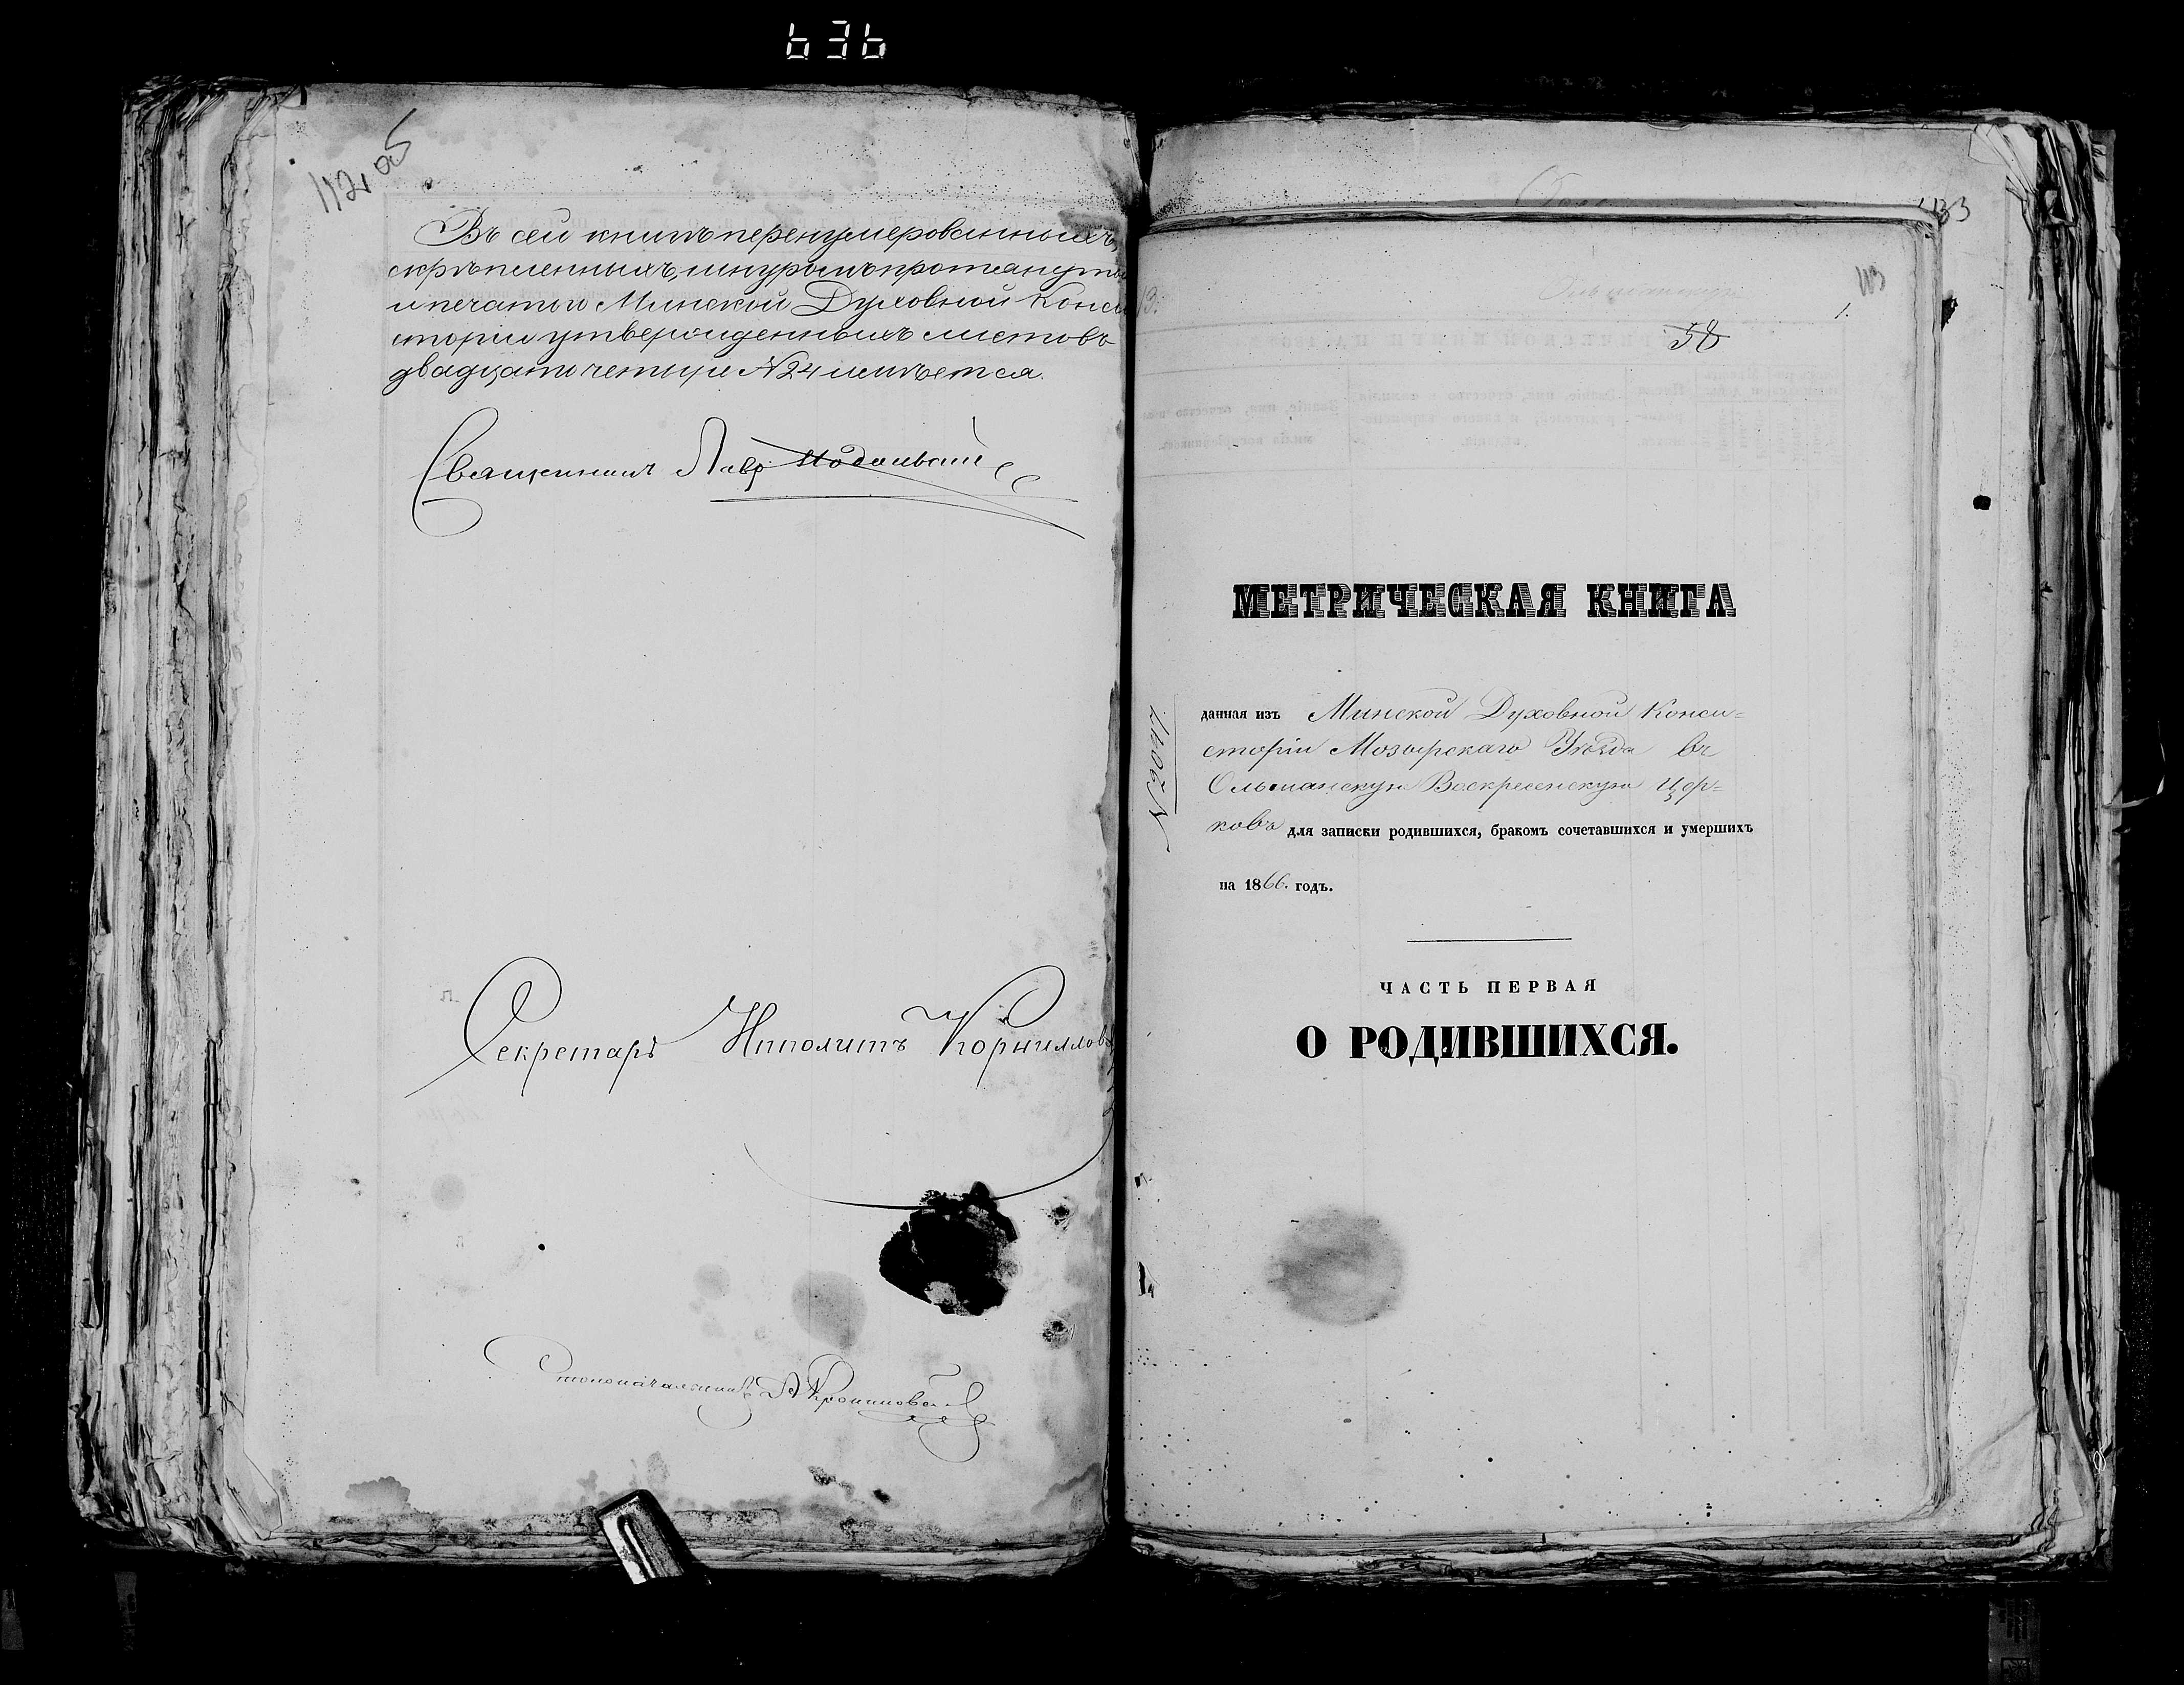 636
112 об
Въ сей книгѣ перенумерованныхъ,
скрѣпленныхъ, шнуромъ протянуты
и печатью Минской Духовной Конси
сторіи утвержденныхъ листовъ
двадцать четыре №24 имѣется.
Священникъ Лавр
Секретарь Ипполитъ Корниллов
Столоначальникъ
133
113
1.
58
МЕТРИЧЕСКАЯ КНИГА
данная изъ Минской Духовной Конси=
сторіи Мозырскаго Уѣзда въ
Ольманскую Воскресенскую Цер=
ковь для записки родившихся, бракомъ сочетавшихся и умершихъ
на 1866. годъ.
ЧАСТЬ ПЕРВАЯ
О РОДИВШИХСЯ.